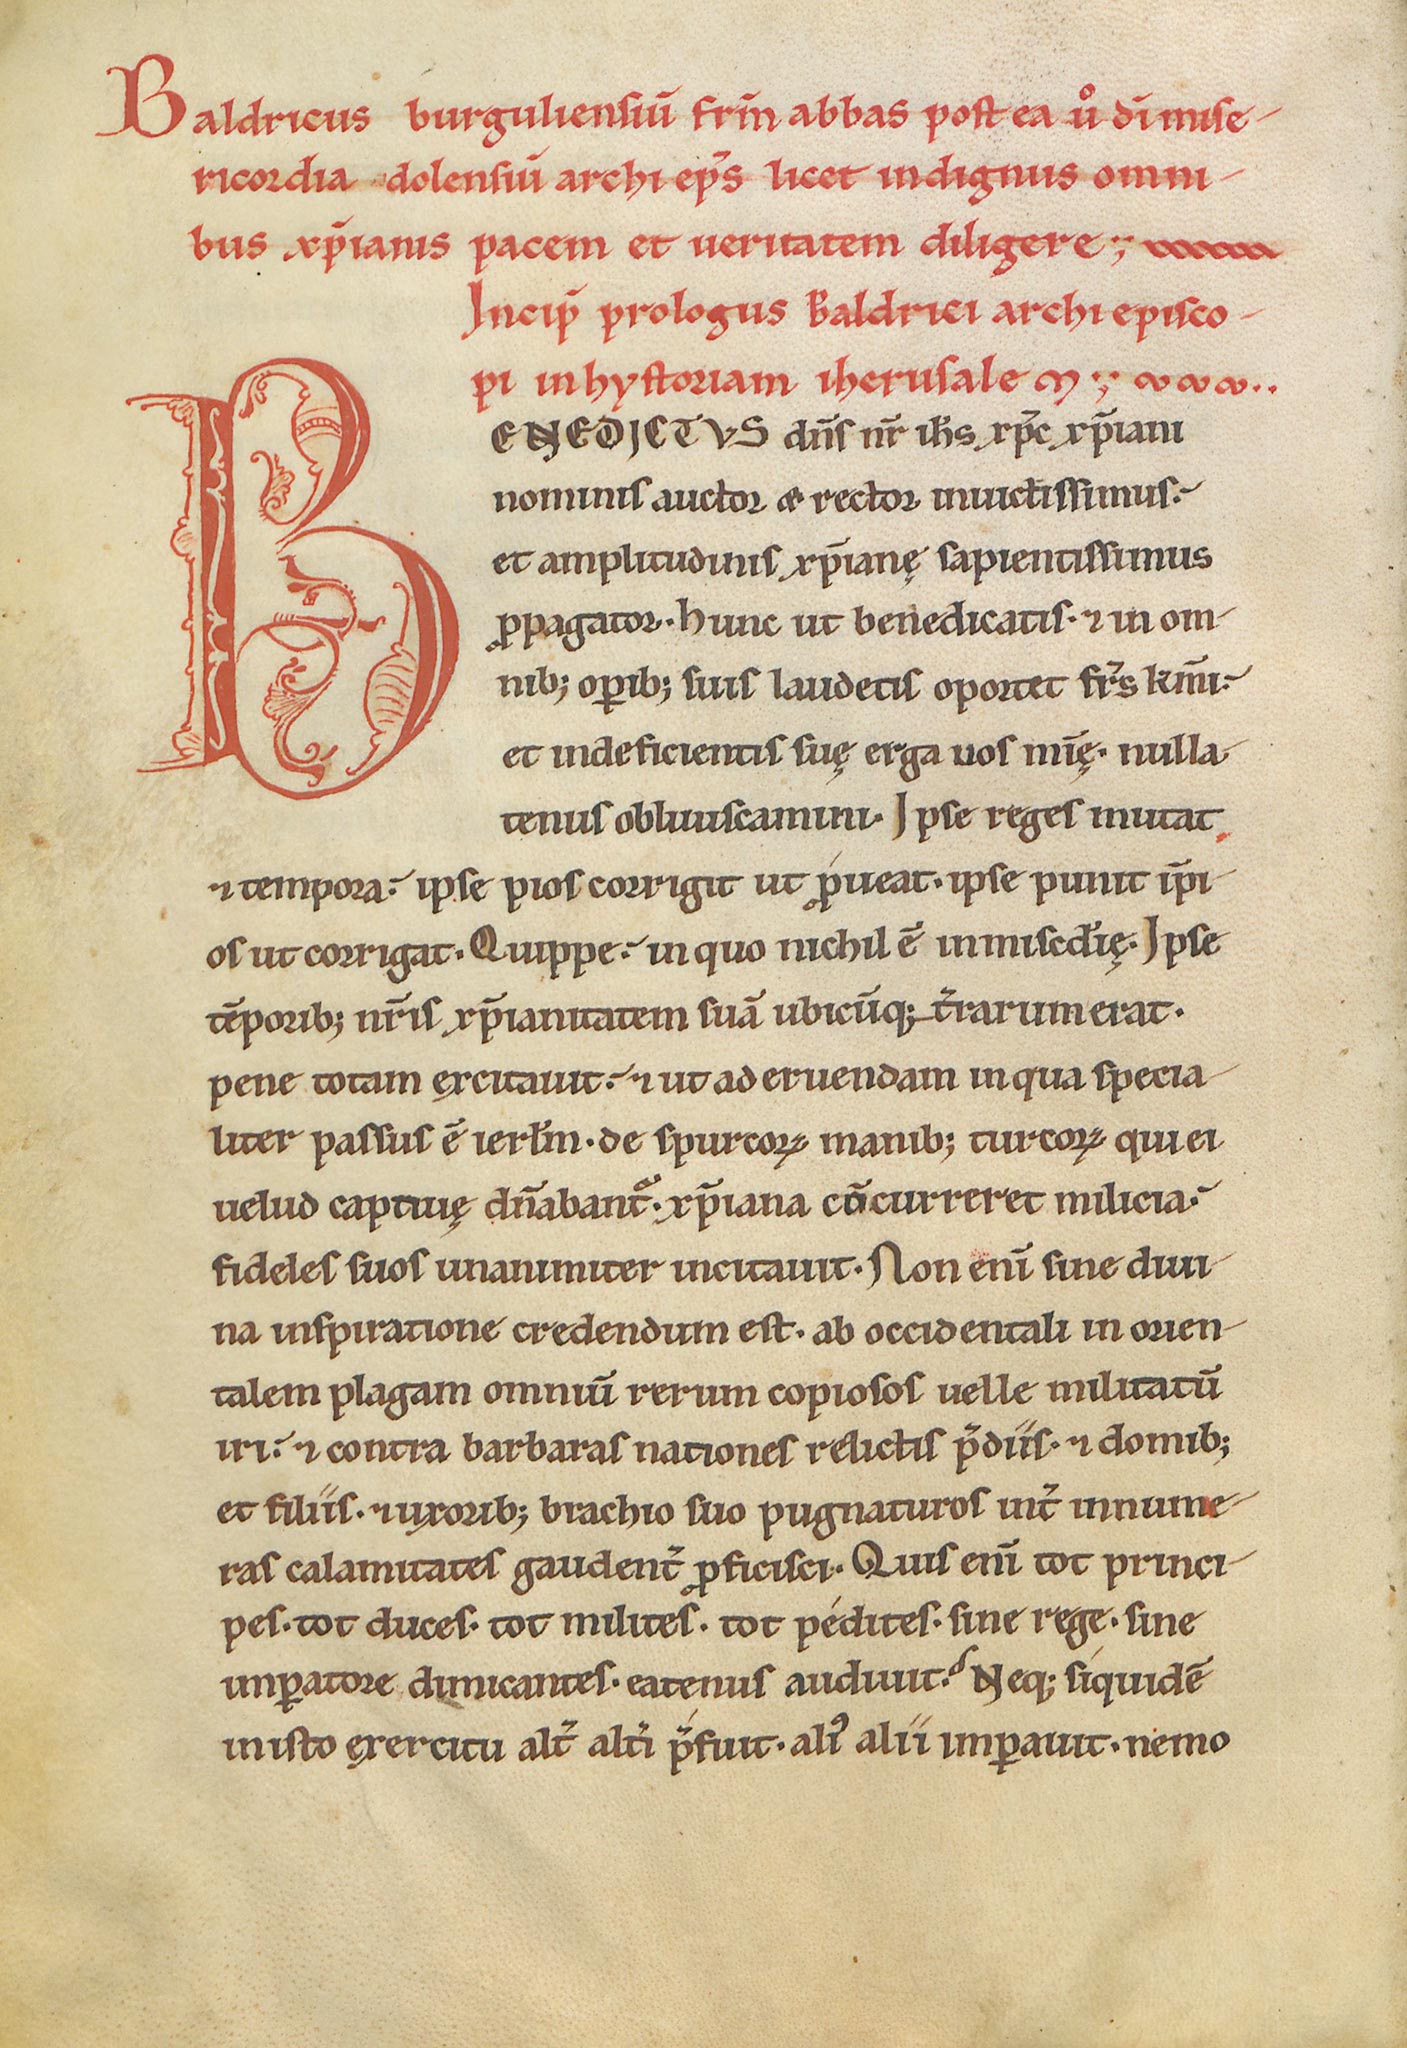 Baldricus burguliensiū fr̄m abbas postea ů dī mise-
ricordia dolensiū archiep̄s licet indignus omni-
bus xp̄ianis pacem et ueritatem diligere;
Incip̄ prologus Baldrici archiepisco-
pi in hystoriam iherusalem;
BENEDICTVS dn̄s nr̄ ih̄s xp̄c xp̄iani
nominis auctor & rector inuictissimus.
et amplitudinis xp̄ianę sapientissimus
ꝓpagator. Hunc ut benedicatis. ⁊ in om-
nib; oꝑib; suis laudetis oportet fr̄s km̄i.
et indeficientis suę erga uos mīę. nulla-
tenus obliuiscamini. Ipse reges mutat
⁊ tempora. ipse pios corrigit ut ꝓueat. ipse punit īpi
os ut corrigat. Quippe. in quo nichil ē inmiscd̄ię. Ipse
tēporib; nr̄is xp̄ianitatem suā ubicūq; t̄rarum erat.
pene totam excitauit. ⁊ ut ad eruendam in qua specia-
liter passus ē ierl̄m. de spurcoꝝ manib; turcoꝝ qui ei
uelud captiuę dn̄abant᷑. xp̄iana cōcurreret milicia.
fideles suos unanimiter incitauit. Non enī sine diui-
na inspiratione credendum est. ab occidentali in orien-
talem plagam omniū rerum copiosos uelle militatū
iri. ⁊ contra barbaras nationes relictis p̄diis. ⁊ domib;
et filiis. ⁊ uxorib; brachio suo pugnaturos int̄ innume-
ras calamitates gaudent̄ ꝓficisci. Quis enī tot princi-
pes. tot duces. tot milites. tot pedites. sine rege. sine
imꝑatore dimicantes. eatenus audiuit. Neq; siquidē
in isto exercitu alt̄ alt̄i p̄fuit. aliꝰ alii imꝑauit. nemo